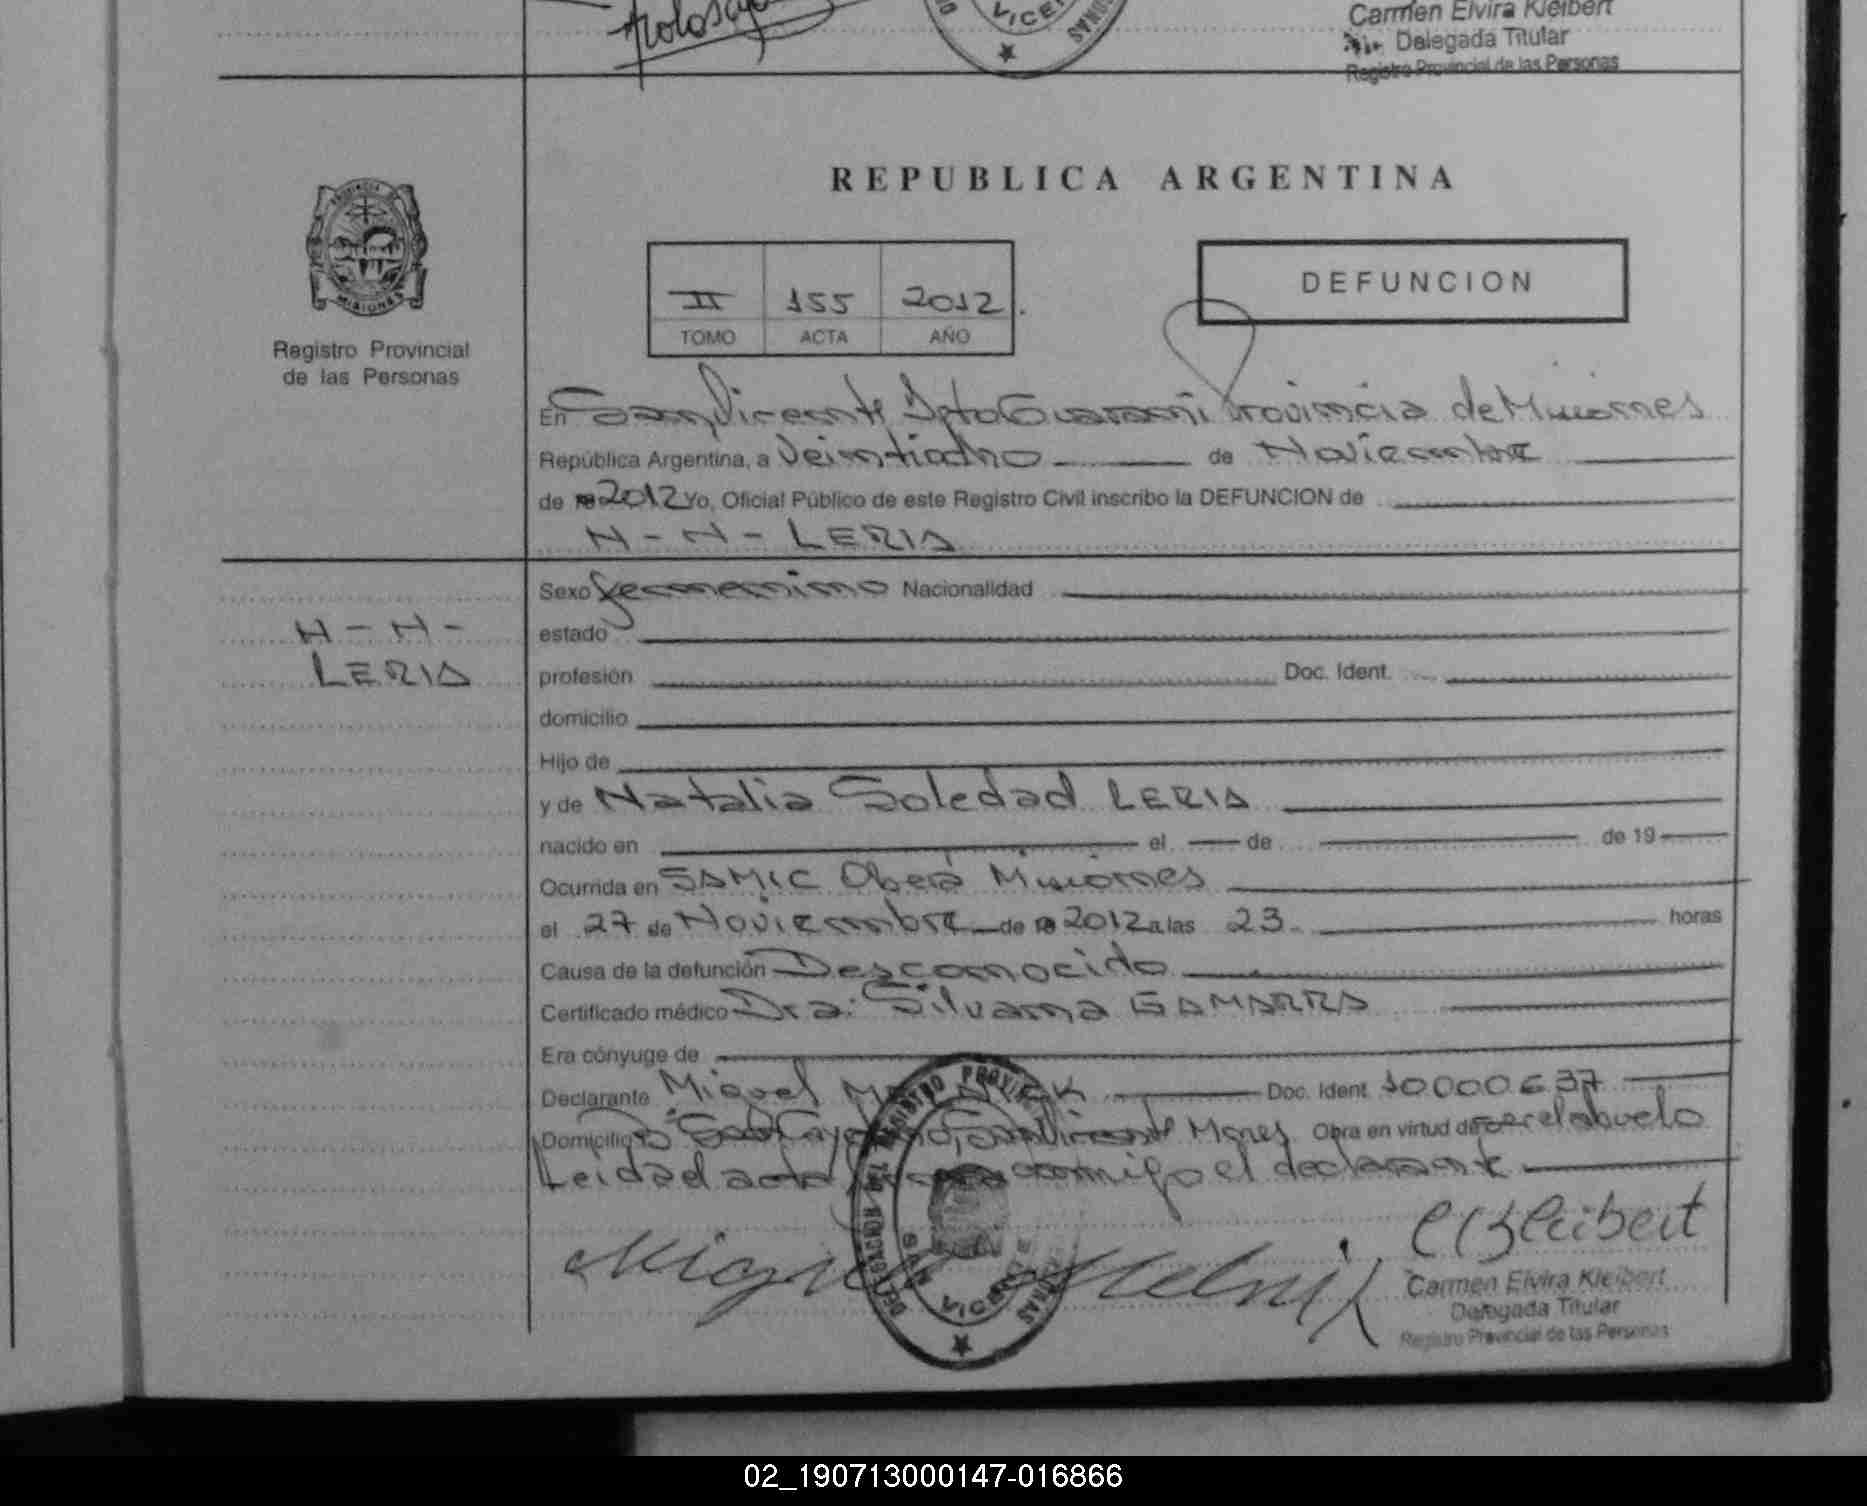 VICEN
Carmen Elvira Kleibert
Delegada Titular
Registro Provincial de las Personas
REPUBLICA ARGENTINA
MISIONES
Registro Provincial
de las Personas
II 155 2012.
TOMO ACTA AÑO
DEFUNCION
En San Vicente Dpto Guaraní Provincia de Misiones
República Argentina, a Veintiocho de Noviembre
de 2012 Yo, Oficial Público de este Registro Civil inscribo la DEFUNCION de
N - N - LERIA
Sexo femenino Nacionalidad
N - N -
LERIA
estado
profesión Doc. Ident.
domicilio
Hijo de
y de Natalia Soledad LERIA
nacido en el de de 19
Ocurrida en SAMIC Oberá Misiones
el 27 de Noviembre de 2012 a las 23 horas
Causa de la defunción Desconocido
Certificado médico Dra: Silvana GAMARRA
Era cónyuge de
Declarante Miguel Doc. Ident. 10000637
Domicilio San Vicente Mnes Obra en virtud de ser el abuelo
Leida el acta conmigo el declarante
Miguel Melnik
DELEGACION DEL REGISTRO PROVINCIAL
SAN VICENTE
C E Kleibert
Carmen Elvira Kleibert
Delegada Titular
Registro Provincial de las Personas
02_190713000147-016866